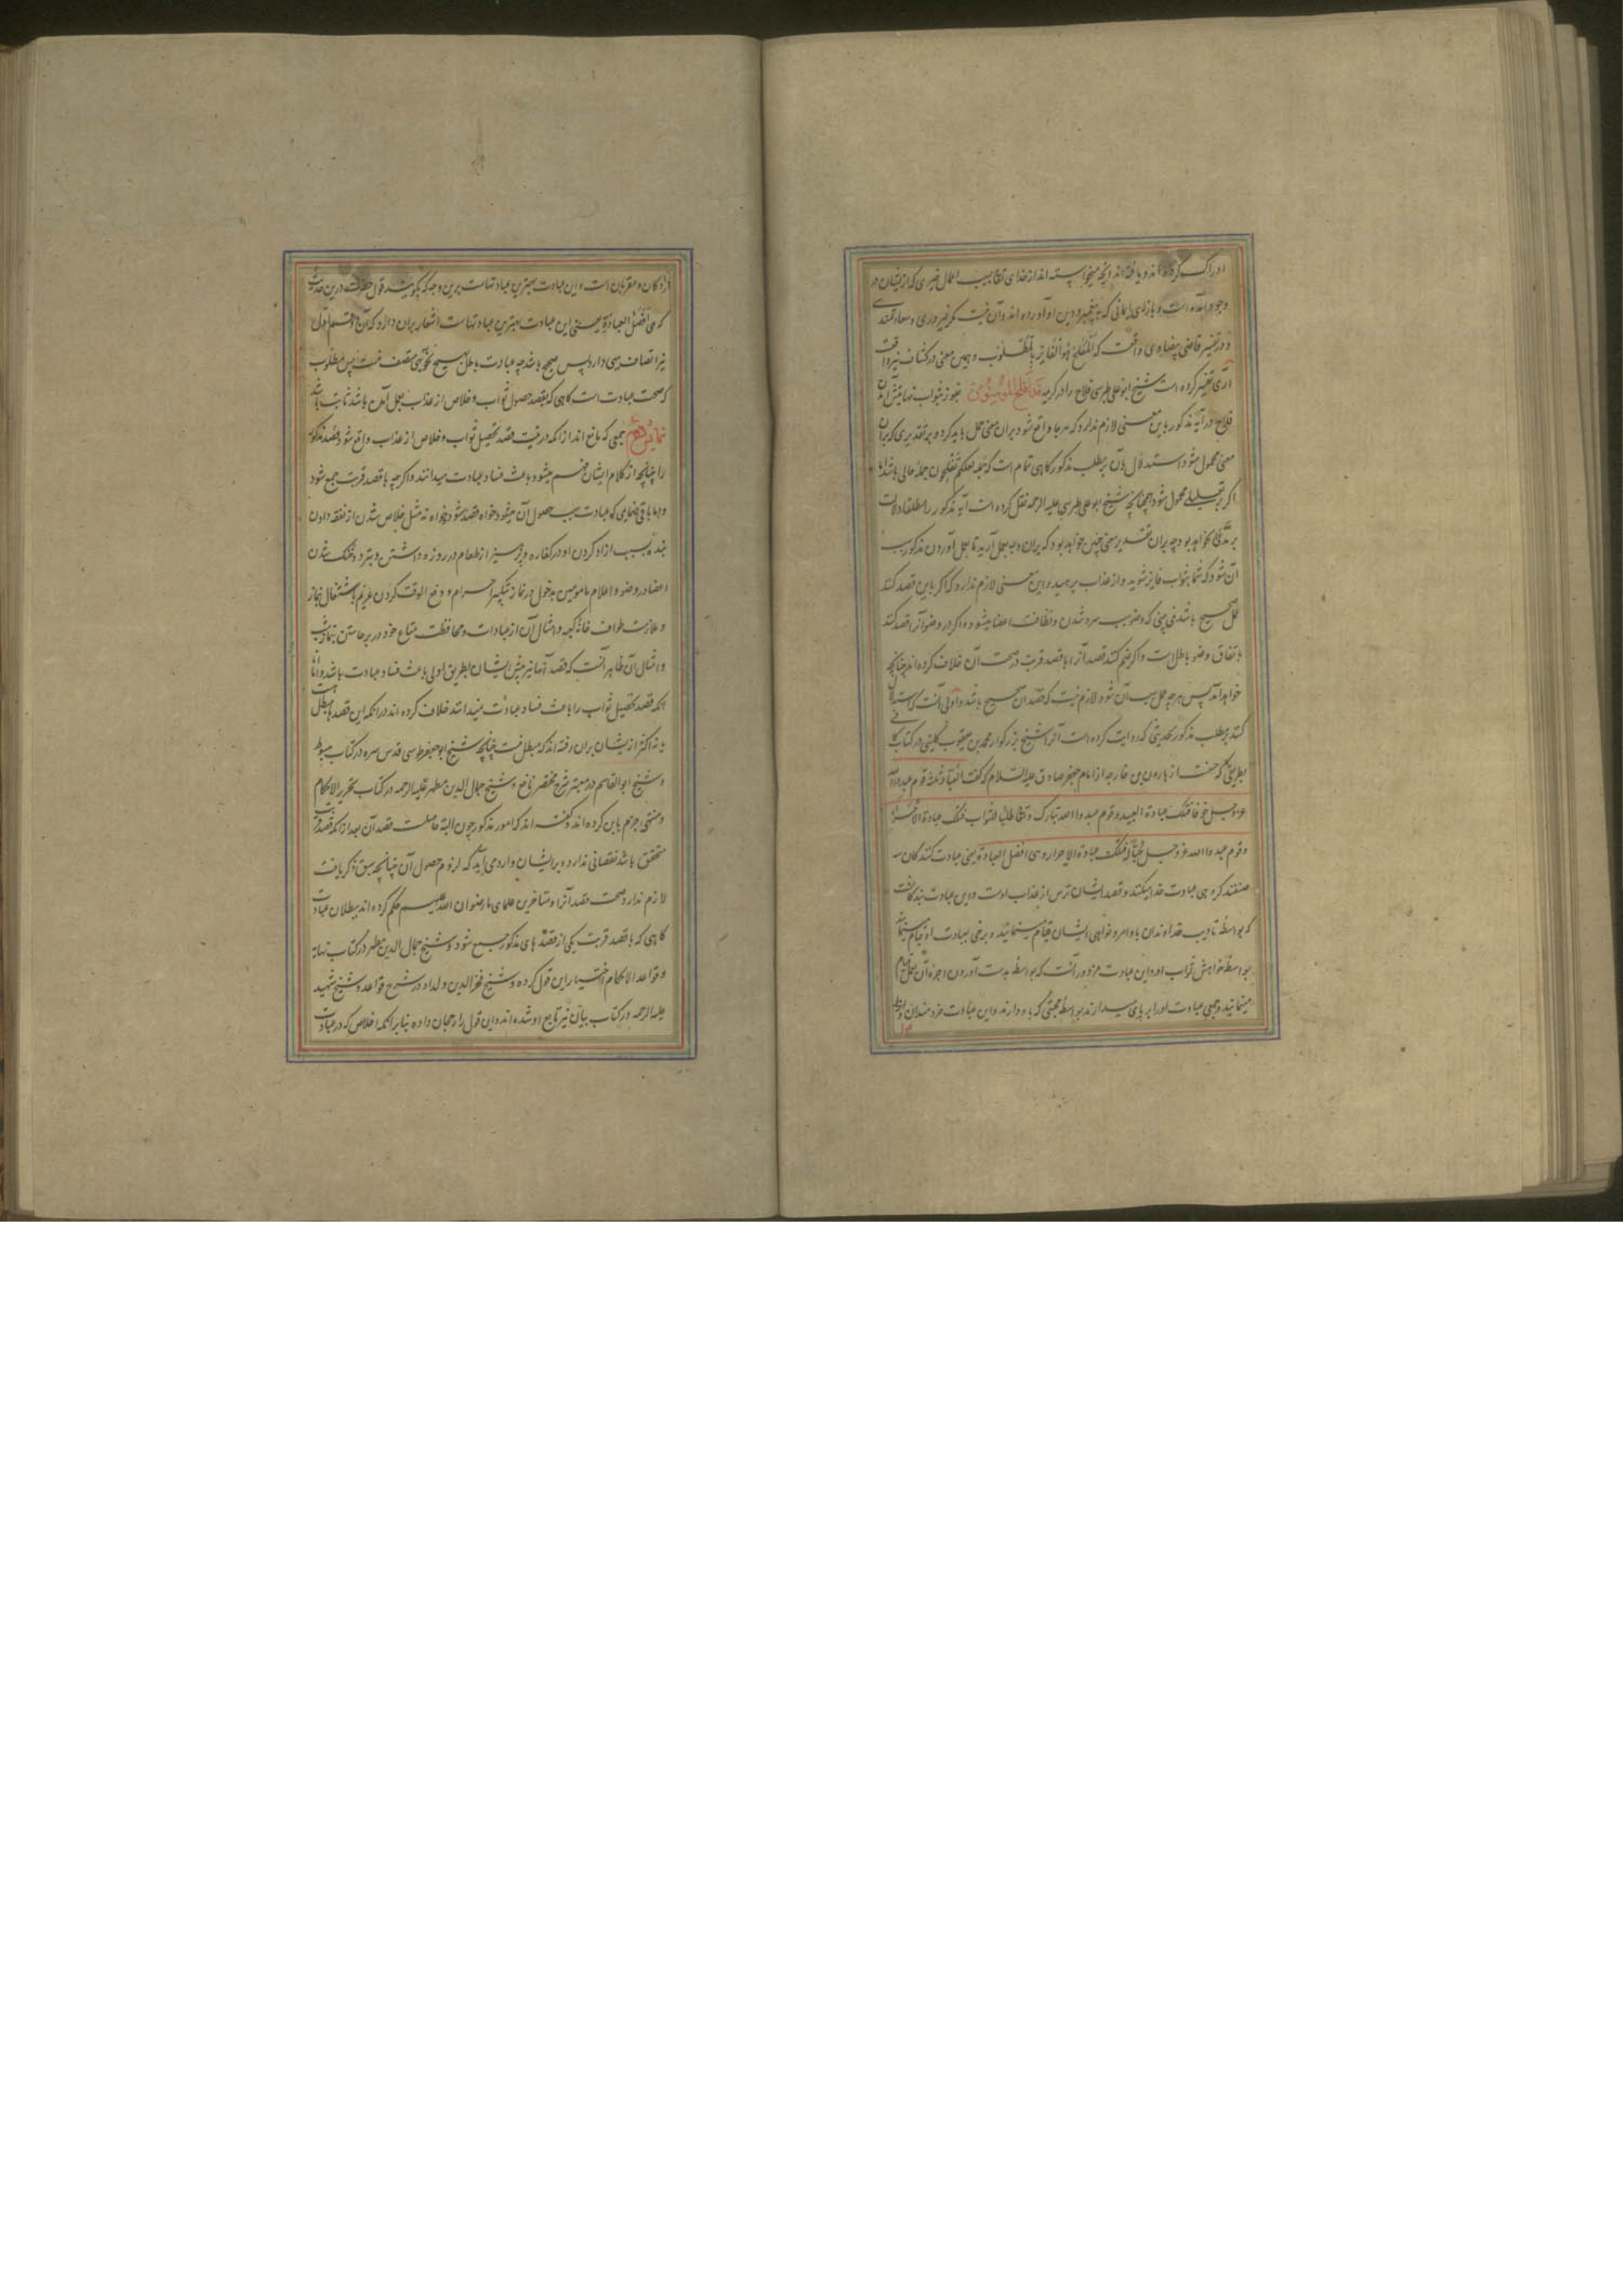 ادراک کرده اند و یافته اند آنچه میخواسته اند از خدای تعالی بسبب اعمال خیری که ازیشان در
وجود آمده است و بازای ایمانی که به پیغمبر و دین او آورده اند و آن نیست مگر فیروزی و سعادتمندی
و در تفسیر قاضی بیضاوی واقعست که المفلح هو الفایز بالمطلوب و همین معنی در کشاف نیز واقعست
آری تفسیر کرده است شیخ ابو علی طبرسی فلاح را در کریمه قد افلح المؤمنون بفوز بثواب
فلاح در آیه مذکور باین معنی لازم ندارد که هر جا واقع شود بران معنی حمل باید کرد و بر تقدیری که بران
معنی محمول شود استدلال بآن بر مطلب مذکور گاهی تمام است که جمله لعلکم تفلحون جمله حالی باشد اما
اگر بر تعلیلی محمول شود همچنانچه شیخ ابو علی طبرسی علیه الرحمه نقل کرده است آیه مذکور را مطلقا دلالت
بر مدعی نخواهد بود چه بران تقدیر معنی چنین خواهد بود که بعمل آرید تا بعمل آوردن مذکور سبب
آن شود که شما بثواب فایز شوید و از عذاب برهید و این معنی لازم ندارد که اگر باین قصد کنند
عمل صحیح باشد نمی بینی که وضو سبب سرد شدن و نظافت اعضا میشود و اگر در وضو آنرا قصد کنند
باتفاق وضو باطلست و اگر ضم کنند قصد آنرا با قصد قربت در صحت آن خلاف کرده اند چنانچه
خواهد آمد پس هر چه عمل سبب آن شود لازم نیست که قصد آن صحیح باشد و اولی آنست که استدلال
کنند بر مطلب مذکور بحدیثی که روایت کرده است آنرا شیخ بزرگوار محمد بن یعقوب کلینی در کتاب کافی
بطریق حسن از هارون بن خارجه از امام جعفر صادق علیه السلام که گفت العباد ثلثة قوم عبدوا الله
عز و جل خوفا فتلک عبادة العبید و قوم عبدوا الله تبارک و تعالی طلبا للثواب فتلک عبادة الاجراء
و قوم عبدوا الله عز و جل حبا له فتلک عبادة الاحرار و هی افضل العبادة یعنی عبادت کنندگان سه
صنفند گروهی عبادت خدا میکنند و قصد ایشان ترس از عذاب اوست و این عبادت بندگانست
که بواسطه تادیب خداوندان باوامر و نواهی ایشان قیام مینمایند و برخی بعبادت او قیام مینمایند
بواسطه خواهش ثواب او و این عبادت مزدورانست که بواسطه بدست آوردن اجرت آن عمل قیام
مینمایند و جمعی عبادت او را بر پای میدارند بواسطه محبتی که باو دارند و این عبادت خردمندان و
آزادگان و مقربان است و این عبادت بهترین عبادتهاست برین وجه که بگویند قول حضرت درین حدیث
که هی افضل العبادة یعنی این عبادت بهترین عبادتهاست اشعار بران دارد که آن دو قسم اول
نیز اتصاف بهی دارد پس صحیح باشد چه عبادت باطل بهیچ نحو بهی متصف نیست پس مطلوب
که صحت عبادت است گاهی که بقصد حصول ثواب و خلاص از عذاب بعمل آمده باشد ثابت باشد
نمایش دهم جمعی که مانع اند از آنکه در نیت قصد تحصیل ثواب و خلاص از عذاب واقع شود قصد مذکور
را چنانچه از کلام ایشان فهم میشود باعث فساد عبادت میدانند و اگر چه با قصد قربت جمع شود
و اما باقی ضمایمی که عبادت سبب حصول آن میشود خواه قصد شود و خواه نه مثل خلاص شدن از نفقه دادن
بنده بسبب ازاد کردن او در کفاره و پرهیز از طعام در روزه داشتن و تبرد و خنک شدن
اعضا در وضو و اعلام مامومین بدخول در نماز بتکبیر احرام و دفع الوقت کردن غریم باشتغال نماز
و ملازمت طواف خانه کعبه و امثال آن از عبادات و محافظت متاع خود در برخاستن بنماز شب
و امثال آن ظاهر آنست که قصد آنها نیز پیش ایشان بطریق اولی باعث فساد عبادت باشد و اما
آنکه قصد تحصیل ثواب را باعث فساد عبادت نمیدانند خلاف کرده اند در آنکه این قصدها مبطل هست
یا نه اکثر ازیشان بران رفته اند که مبطل نیست چنانچه شیخ ابو جعفر طوسی قدس سره در کتاب مبسوط
و شیخ ابو القاسم در معتبر شرح مختصر نافع و شیخ جمال الدین مطهر علیه الرحمه در کتاب تحریر الاحکام
و منتهی جزم باین کرده اند و گفته اند که امور مذکور چون البته حاصلست قصد آن بعد از آنکه قصد قربت
متحقق باشد نقصانی ندارد و بر ایشان وارد می آید که لزوم حصول آن چنانچه سبق ذکر یافت
لازم ندارد صحت قصد آنرا و متاخرین علمای ما رضوان الله علیهم حکم کرده اند ببطلان عبادت
گاهی که با قصد قربت یکی از قصدهای مذکور جمع شود و شیخ جمال الدین مطهر در کتاب نهایه
و قواعد الاحکام اختیار این قول کرده و شیخ فخر الدین ولد او در شرح قواعد و شیخ شهید
علیه الرحمه در کتاب بیان نیز تابع او شده اند و این قول را رجحان داده بنابر آنکه اخلاص که در عبادت